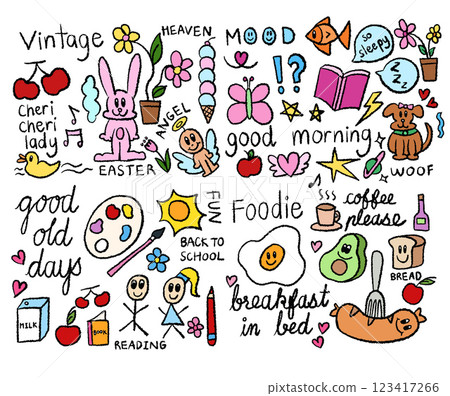 Vintage
HEAVEN
cheri
cheri
lady
ANGEL
EASTER
MOOD
!?
so
sleepy
zzz
good morning
WOOF
good
old
days
FUN
BACK TO
SCHOOL
MILK
BOOK
READING
Foodie
coffee
please
BREAD
breakfast
in bed
PIXTA
123417266